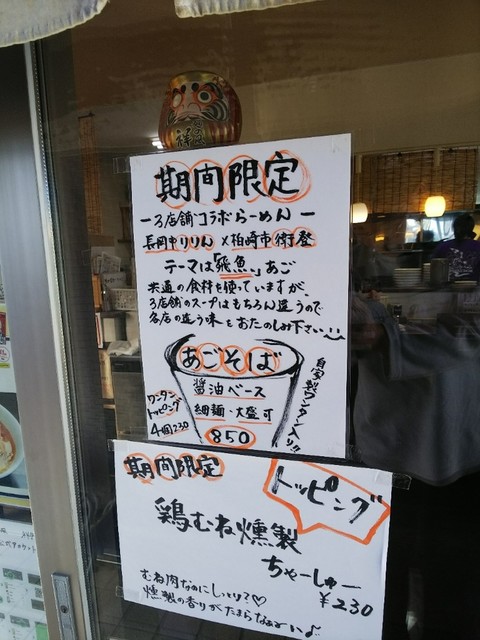 期間限定
ー3店舗コラボらーめんー
長岡市りりん×柏崎市街登
テーマは「飛魚」あご
共通の食材を使っていますが、
3店舗のスープはもちろん違うので
各店の違う味をおたのしみ下さい
あごそば
醤油ベース
細麺・大盛可
850
ワンタン
トッピング
4個230
自家製ワンタン入り!!
期間限定
トッピング
鶏むね燻製
ちゃーしゅー
¥230
むね肉なのにしっとり?♡
燻製の香りがたまらなぁーい♪